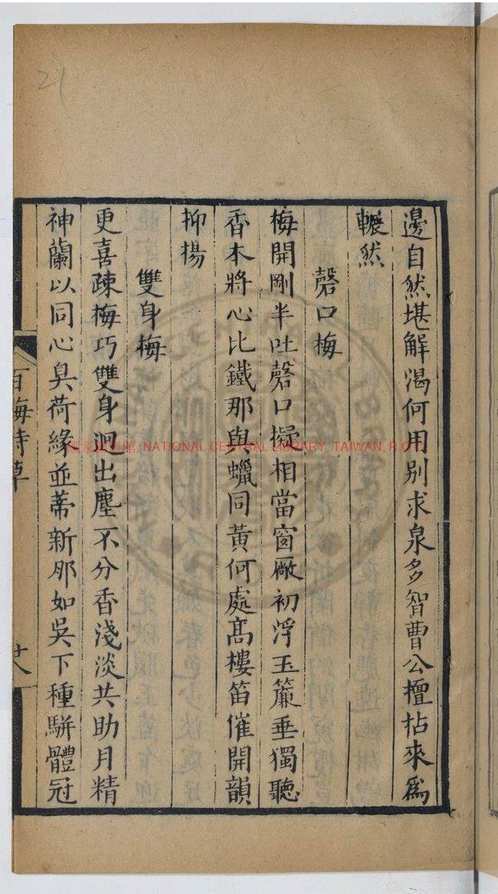 邊自然堪解渴何用別求泉多智曹公擅拈來爲
囅然
磬口梅
梅開剛半吐磬口擬相當窗厰初浮玉簾垂獨聽
香本將心比鐵那與蠟同黃何處高樓笛催開韻
抑揚
雙身梅
更喜疎梅巧雙身迥出塵不分香淺淡共助月精
神蘭以同心臭荷緣並蒂新那如吳下種駢體冠
百梅詩草
廿八
21
NATIONAL CENTRAL LIBRARY, TAIWAN, R.O.C